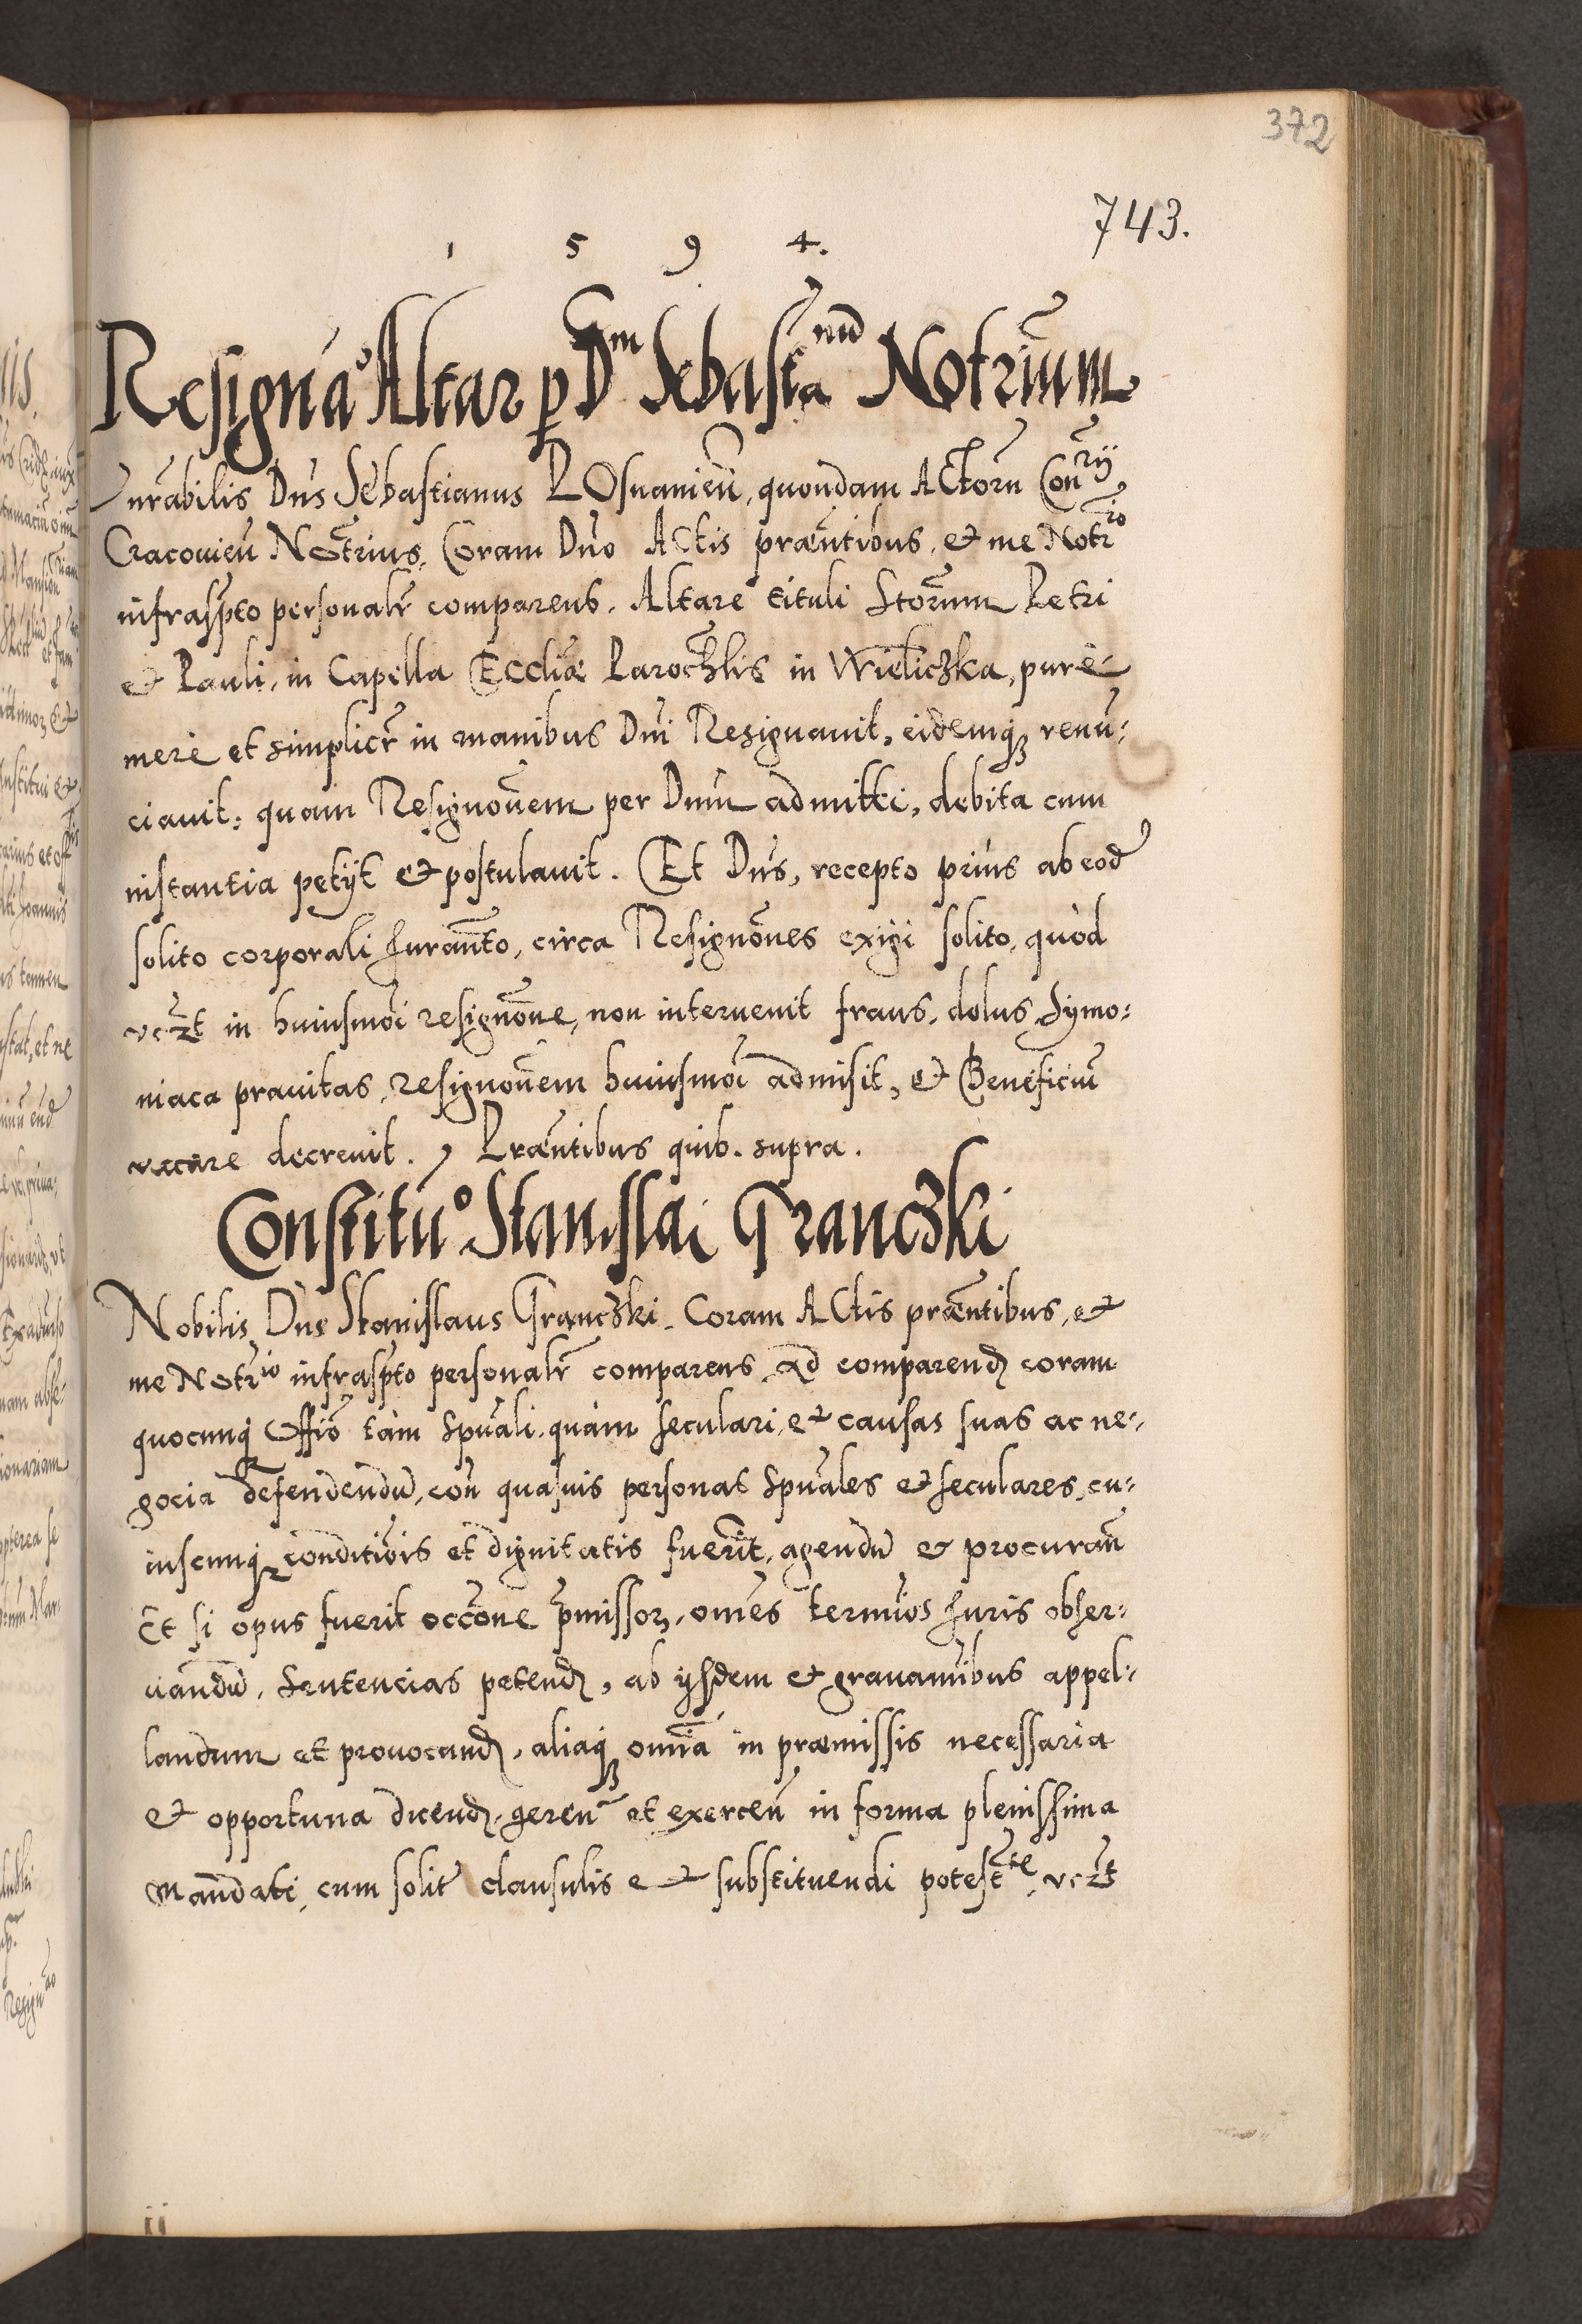 372
743.
1 5 9 4.
Resigna͠o Altar p Dm̃ Sebastianũ Notrium
Vnrãbilis Dñs Sebastianus POsnanieñ, quondam ACtorũ Conrÿ
Cracouieñ Notr̃ius, Coram Dño ACtis præñtibus, et me Notrio
infrasp̃to personalr̃ comparens, Altare tituli Stor̃um Petri
et Pauli, in Capella Eccliæ Paroch̃lis in Wieliczka, purè
merè et simplicr̃ in manibus Dñi Resignauit, eidemq₃ renũ:
ciauit: quam Resignõnem per Dñm admitti, debita cum
instantia petÿt et postulauit. Et Dñs, recepto prius ab eod̃
solito corporali Juram̃to, circa Resignõnes exigi solito, quòd
vcz̃t in huiusmõi resignõne, non interuenit fraus, dolus Symo:
niaca prauitas, resignõnem huiusmõi admisit, et Beneficiũ
vacare decreuit. Præñtibus quib. supra.
Constitũo Stanislai Granczki
Nobilis Dñs Stanislaus Granczki Coram ACtis præñtibus, et
me Notrio infrasp̃to personalr̃ comparens, ad comparend̃ coram
quocunq₃ Offiõ tàm Spũali quàm seculari, et causas suas ac ne:
gocia defendendũ, coñ quasuis personas Spũales et seculares, cu:
iuscunq₃ conditiõis et dignitatis fuerĩt, agendũ et procurañ
Et si opus fuerit occõne p̃missor₃, om̃es termĩos Juris obser:
uandũ, Sentencias petend̃, ab ÿsdem et grauamĩbus appel:
landum et prouocand̃, aliaq₃ omñia in præmissis necessaria
et opportuna dicend̃, gereñ et exerceñ in forma plenissima
Mandati, cum solit̃ clausulis et substituendi potest̃te, vcz̃t